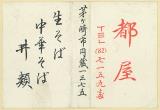 都屋
丁EL (82) 七一五九番
茅ヶ崎市円蔵一三七五
生そば
中華そば
丼類